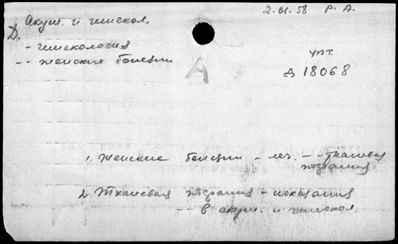 2.01.58 Р. А.
Акуш. и гинекол.
D.
- гинекология
-- женские болезни
упт.
А
Д 18068
1. Женские болезни - леч. -- тканевая
терапия
2. Тканевая терапия - показания
-- в акуш. и гинекол.